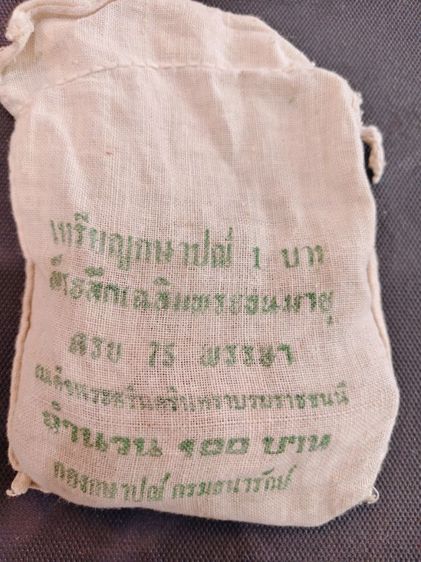 เหรียญกษาปณ์ 1 บาท
ที่ระลึกเฉลิมพระชนมายุ
ครบ 75 พรรษา
สมเด็จพระศรีนครินทราบรมราชชนนี
จำนวน ๑๐๐ บาท
กองกษาปณ์ กรมธนารักษ์